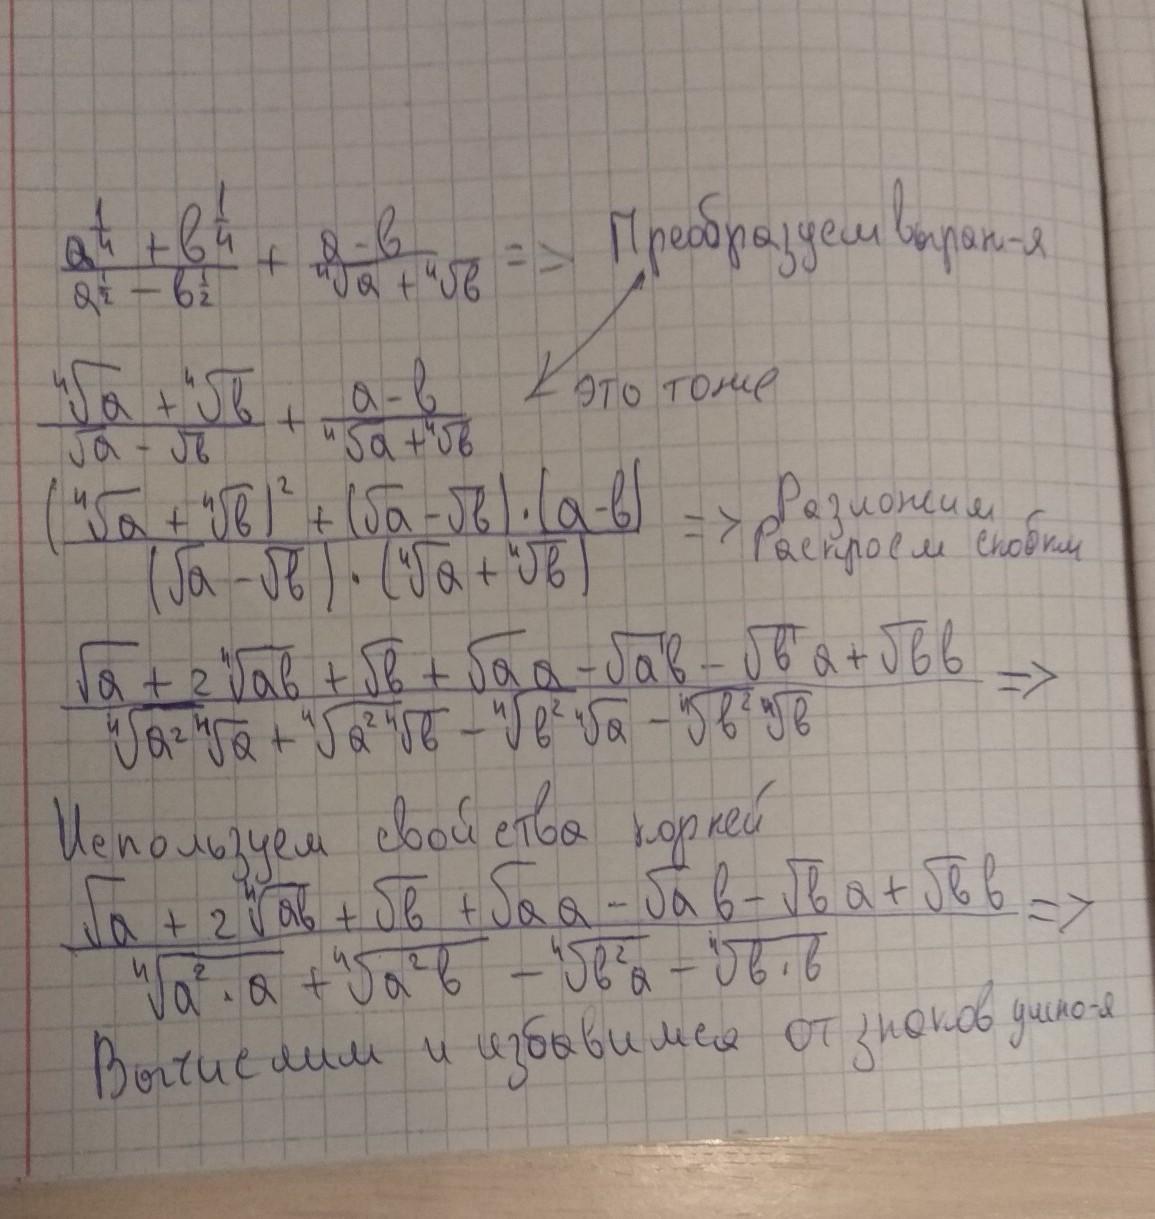 a^{1/4} + b^{1/4} / a^{1/2} - b^{1/2} + a - b / ⁴√a + ⁴√b => Преобразуем выраж-я
⁴√a + ⁴√b / √a - √b + a - b / ⁴√a + ⁴√b это тоже
(⁴√a + ⁴√b)² + (√a - √b) · (a - b) / (√a - √b) · (⁴√a + ⁴√b) => Разложим
Раскроем скобки
√a + 2 ⁴√ab + √b + √a a - √a b - √b a + √b b / ⁴√a² ⁴√a + ⁴√a² ⁴√b - ⁴√b² ⁴√a - ⁴√b² ⁴√b =>
Используем свойства корней
√a + 2 ⁴√ab + √b + √a a - √a b - √b a + √b b / ⁴√a² · a + ⁴√a² b - ⁴√b² a - ⁴√b · b =>
Вычислим и избавимся от знаков умно-я